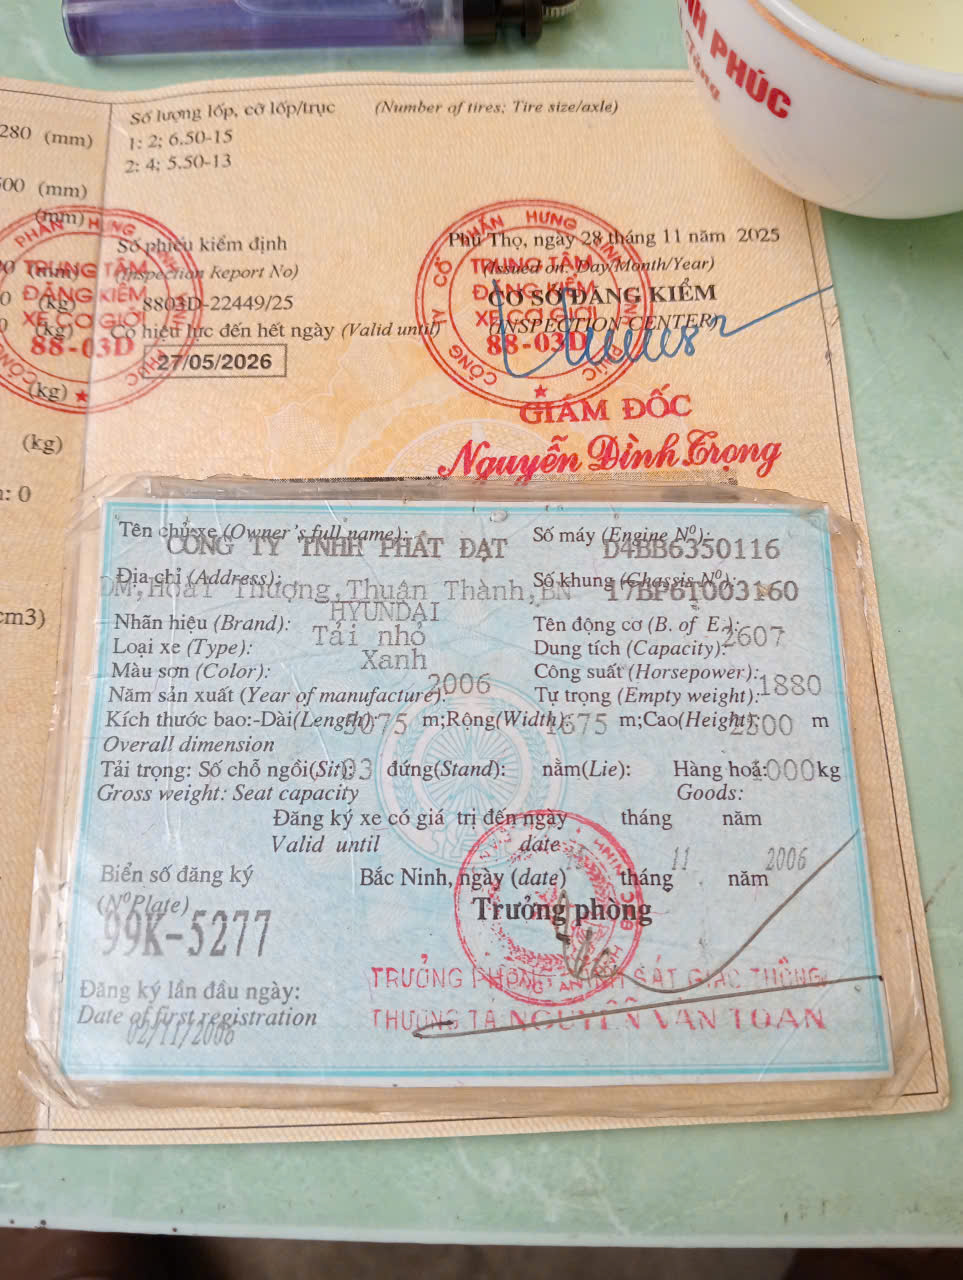 NH PHÚC
Tặng
Số lượng lốp, cỡ lốp/trục (Number of tires; Tire size/axle)
1: 2; 6.50-15
2: 4; 5.50-13
280 (mm)
(mm)
(mm)
(mm)
(kg)
(kg)
(kg)
(kg)
: 0
cm3)
Số phiếu kiểm định
(Inspection Report No)
8803D-22449/25
Có hiệu lực đến hết ngày (Valid until)
27/05/2026
Phú Thọ, ngày 28 tháng 11 năm 2025
(Issued on: Day/Month/Year)
CƠ SỞ ĐĂNG KIỂM
(INSPECTION CENTER)
TRUNG TÂM
ĐĂNG KIỂM
XE CƠ GIỚI
88-03D
TRUNG TÂM
ĐĂNG KIỂM
XE CƠ GIỚI
88-03D
GIÁM ĐỐC
Nguyễn Đình Trọng
Tên chủ xe (Owner's full name):
CÔNG TY TNHH PHÁT ĐẠT
Số máy (Engine Nº):
D4BB6350116
Địa chỉ (Address):
Thượng,Thuận Thành,BN
Số khung (Chassis Nº):
17BP6T003160
Nhãn hiệu (Brand): HYUNDAI
Tên động cơ (B. of E.):
Loại xe (Type): Tải nhỏ
Dung tích (Capacity): 2607
Màu sơn (Color): Xanh
Công suất (Horsepower):
Năm sản xuất (Year of manufacture): 2006
Tự trọng (Empty weight): 1880
Kích thước bao:-Dài(Length): 5075 m;Rộng(Width): 1675 m;Cao(Height): m
Overall dimension
Tải trọng: Số chỗ ngồi(Sit): 03 đứng(Stand): nằm(Lie): Hàng hoá: kg
Gross weight: Seat capacity Goods:
Đăng ký xe có giá trị đến ngày tháng năm
Valid until date
11 2006
Biển số đăng ký
Bắc Ninh, ngày (date) tháng năm
(NºPlate)
99K-5277
Trưởng phòng
TRƯỞNG PHÒNG SÁT GIAO THÔNG
Đăng ký lần đầu ngày:
Date of first registration
02/11/2006
THƯỢNG TÁ NGUYỄN VĂN TOÀN